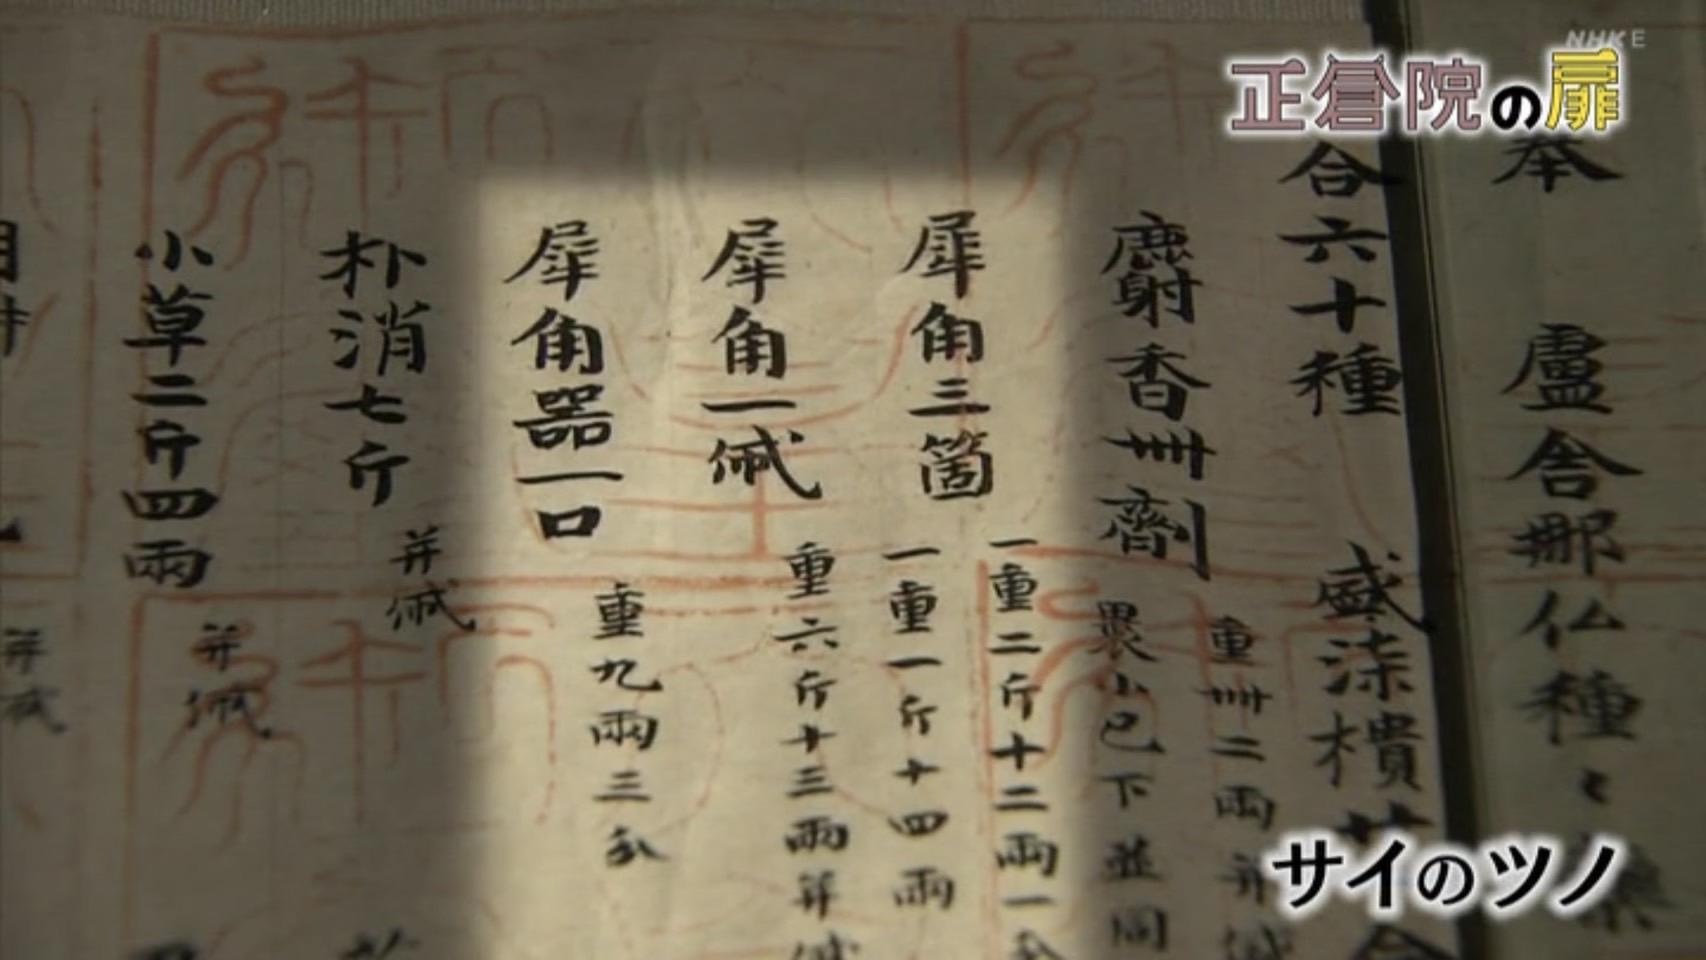 NHK E
正倉院の扉
奉 盧舎那仏種々
合六十種 盛漆櫃廿
麝香卌劑 重卌二兩并帒
裹小巳下並同
犀角三箇 一重二斤十二兩一分
一重一斤十四兩
犀角一帒 重六斤十三兩并帒
犀角器一口 重九兩三分
朴消七斤 并帒
小草二斤四兩 并帒
并帒
サイのツノ